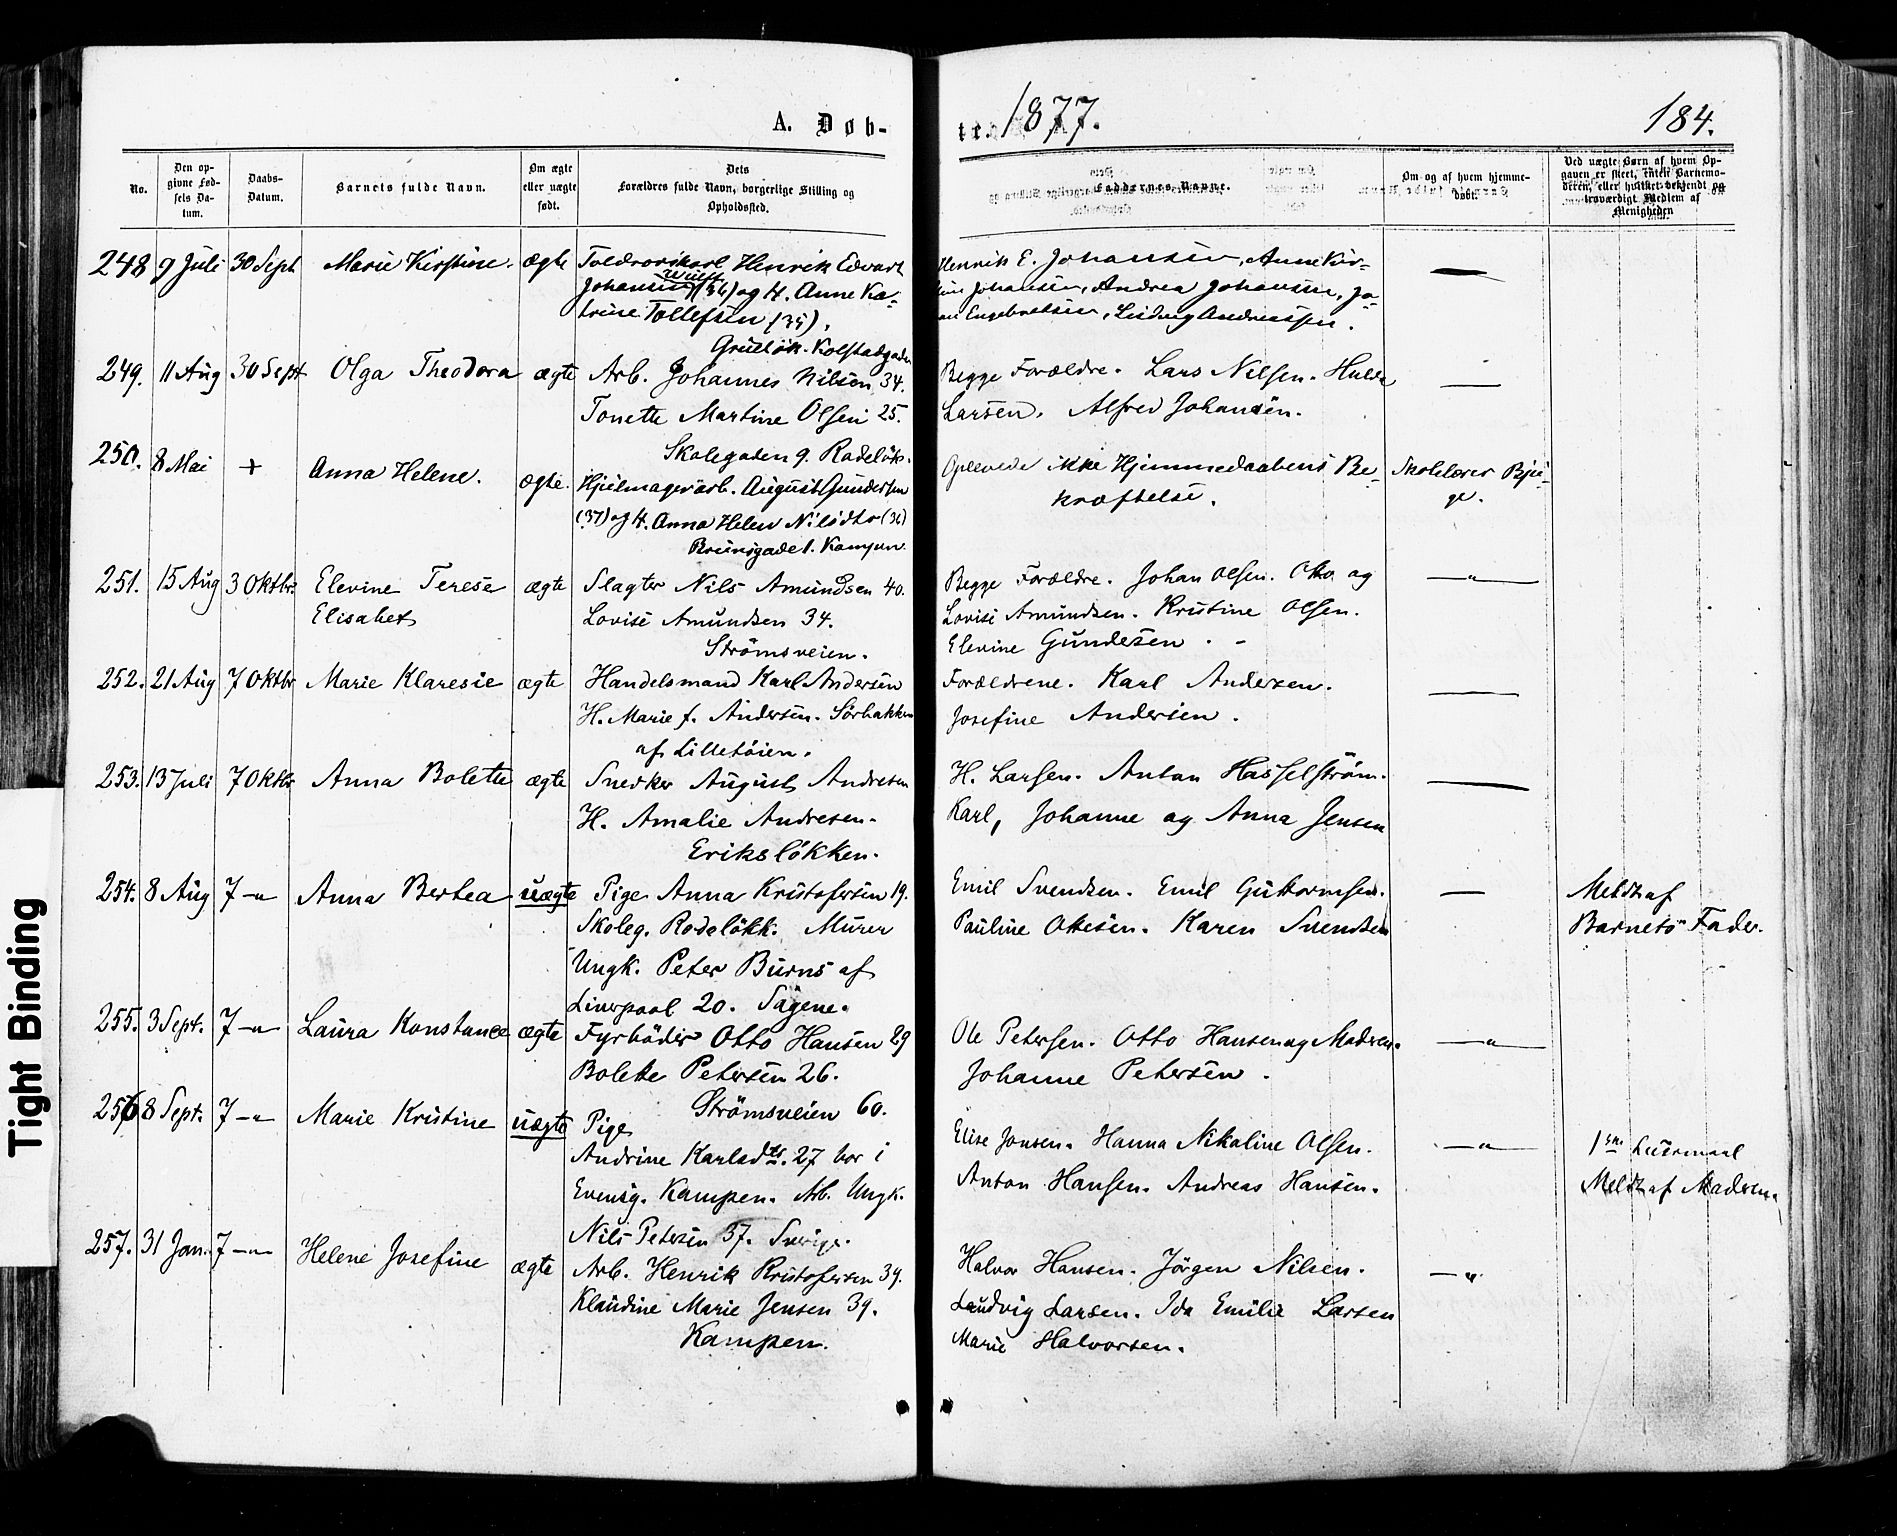 A. Døb-
tc. 1877.
184.
No.
Den op-
givne Fød-
sels Da-
tum.
Daabs-
Datum.
Barnets fulde Navn.
Om ægte
eller uægte
født.
Dets
Forældres fulde Navn, borgerlige Stilling og
Opholdssted.
Faddernes Navne.
Om og af hvem hjemme-
døbt.
Ved uægte Børn af hvem Op-
gaven er skeet, enten Barnemo-
deren, eller hvilket bekjendt og
troværdigt Medlem af
Menigheden
248 9 Juli 30 Sept Marie Kirstine. ægte
Henrik Edvart
Johansen (36) og H. Anne Ka-
trine Tollefsen (35),
Grülløk. Kolstadgaden
Henrik E. Johansen, Anne Kir-
Johansen, Andrea Johansen, Jo-
Engebretsen, Ludvig Andreassen.
249. 11 Aug 30 Sept Olga Theodora ægte
Arb. Johannes Nilsen 34.
Tonette Martine Olsen 25.
Skolegaden 9. Rodeløk.
Begge Forældre. Lars Nilsen. Hulda
Larsen. Alfred Johansen.
250. 8 Mai + Anna Helene. ægte.
Hjulmagerarb. August Gundersen
(37) og H. Anna Helen Nilsdtr (36)
Brünsgade 1. Kampen.
Oplevede ikke Hjemmedaabens Be-
kræftelse.
Skolelærer Bjü-
ge.
251. 15 Aug 3 Oktbr. Elevine Terese
Elisabet
ægte
Slagter Nils Amundsen 40.
Lovise Amundsen 34.
Strömsveien.
Begge Forældre. Johan Olsen. Otto og
Lovise Amundsen. Kristine Olsen.
Elevine Gundesen.
252. 21 Aug 7 Oktbr Marie Klaresie ægte
Handelsmand Karl Andersen
H. Marie f. Andersen. Sörbakken
af Lilletöien.
Forældrene. Karl Andersen.
Josefine Andersen.
253. 13 Juli 7 Oktbr Anna Bolette ægte
Snedker August Andresen
H. Amalie Andresen.
Eriksløkken.
H. Larsen. Anton Hasselström.
Karl, Johanne og Anna Jensen
254. 8 Aug 7 -"- Anna Bertea uægte
Pige Anna Kristofersen 19.
Skoleg. Rodeløkk. Murer
Ungk. Peter Burns af
Liverpool 20. Sagene.
Emil Svendsen. Emil Guttormsen.
Pauline Ottesen. Karen Svendsen
Meldt af
Barnets Fader.
255. 3 Sept. 7 -"- Laura Konstance ægte
Fyrböder Otto Hansen 29
Bolette Petersen 26.
Strömsveien 60.
Ole Petersen. Otto Hansen og Madren.
Johanne Petersen.
-"-
256 8 Sept. 7 -"- Marie Kristine uægte
Pige
Andrine Karlsdtr. 27 bor i
Evensg. Kampen. Arb. Ungk.
Nils Petersen 37. Sverige.
Elise Jonsen. Hanna Nikoline Olsen.
Anton Hansen. Andreas Hansen.
-"-
1ste Leiermaal
Meldt af Madren.
257. 31 Jan. 7 -"- Helene Josefine ægte
Arb. Henrik Kristofersen 39.
Klaudine Marie Jensen 39.
Kampen.
Halvor Hansen. Jörgen Nilsen.
Laudvig Larsen. Ida Emilie Larsen
Marie Halvorsen.
-"-
Tight Binding